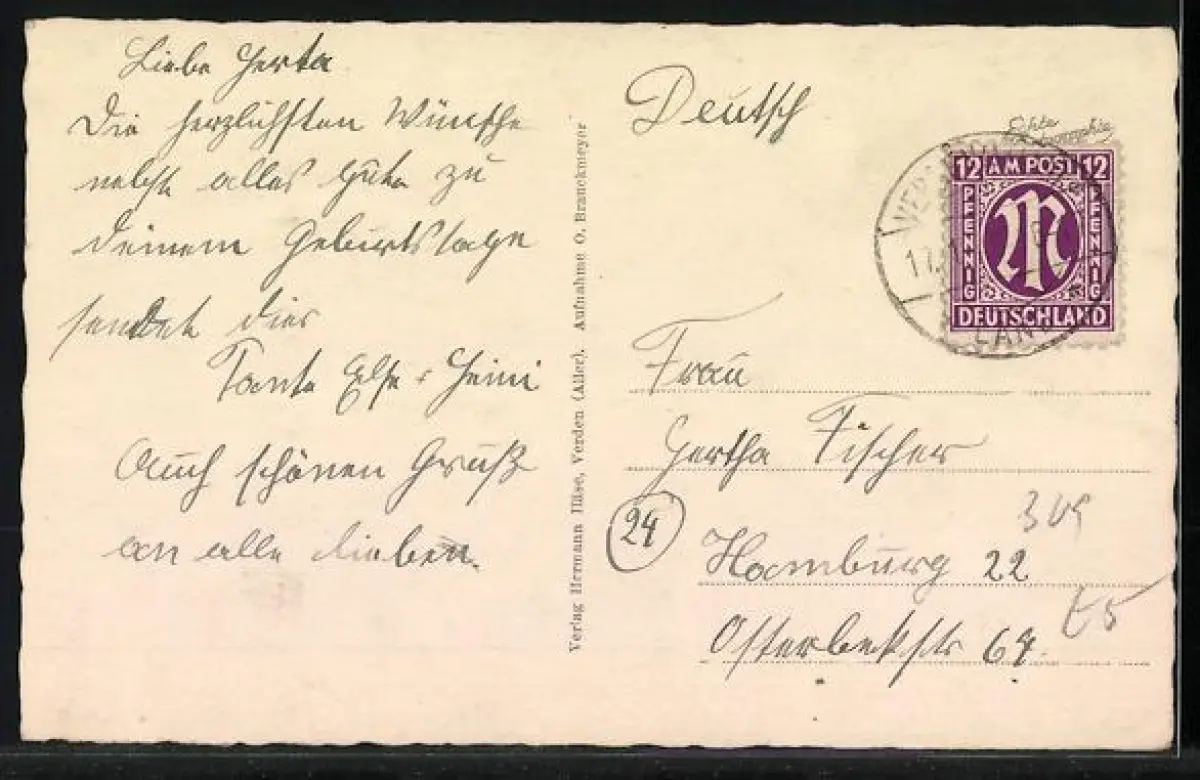 Liebe Herta
Die herzlichsten Wünsche
nebst alles Gute zu
deinem Geburtstage
sendet dier
Tante Else + Heini
Auch schönen Gruß
an alle Lieben.
Verlag Hermann Hüse, Verden (Aller). Aufnahme O. Brauckmeyer
Deutsch
Echte
12 AM POST 12
PFENNIG
PFENNIG
DEUTSCHLAND
VER
17
LAND
Frau
Hertha Fischer
24
Hamburg 22
Osterbekstr 64.